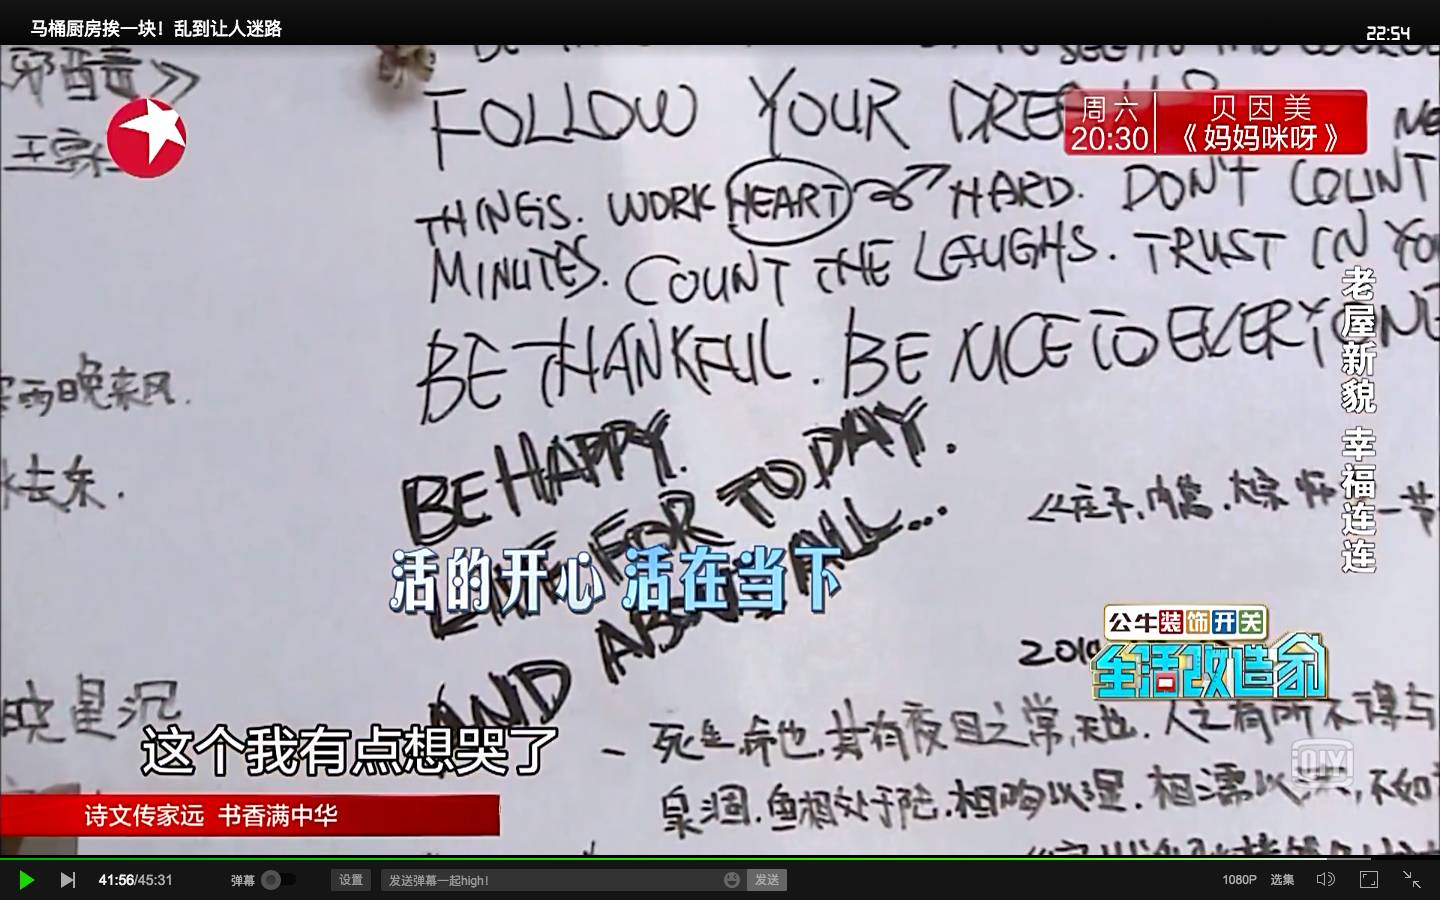 马桶厨房挨一块！乱到让人迷路
22:54
FOLLOW YOUR
周六
20:30
贝因美
《妈妈咪呀》
THINGS. WORK HEART HARD. DON'T COUNT
MINUTES. COUNT THE LAUGHS. TRUST IN
BE THANKFUL. BE NICE TO EVERYONE
BE HAPPY.
FOR TODAY.
AND ALL...
老屋新貌 幸福连连
雨晚来风.
去东.
《庄子,内篇,大宗师
活的开心 活在当下
公牛装饰开关
生活改造家
晓星沉
死生,命也,其有夜旦之常,天也.人之有所不得与
泉涸.鱼相处于陆,相呴以湿.相濡以,不如
这个我有点想哭了
iQIYI
诗文传家远 书香满中华
41:56/45:31
弹幕
设置
发送弹幕一起high!
发送
1080P
选集